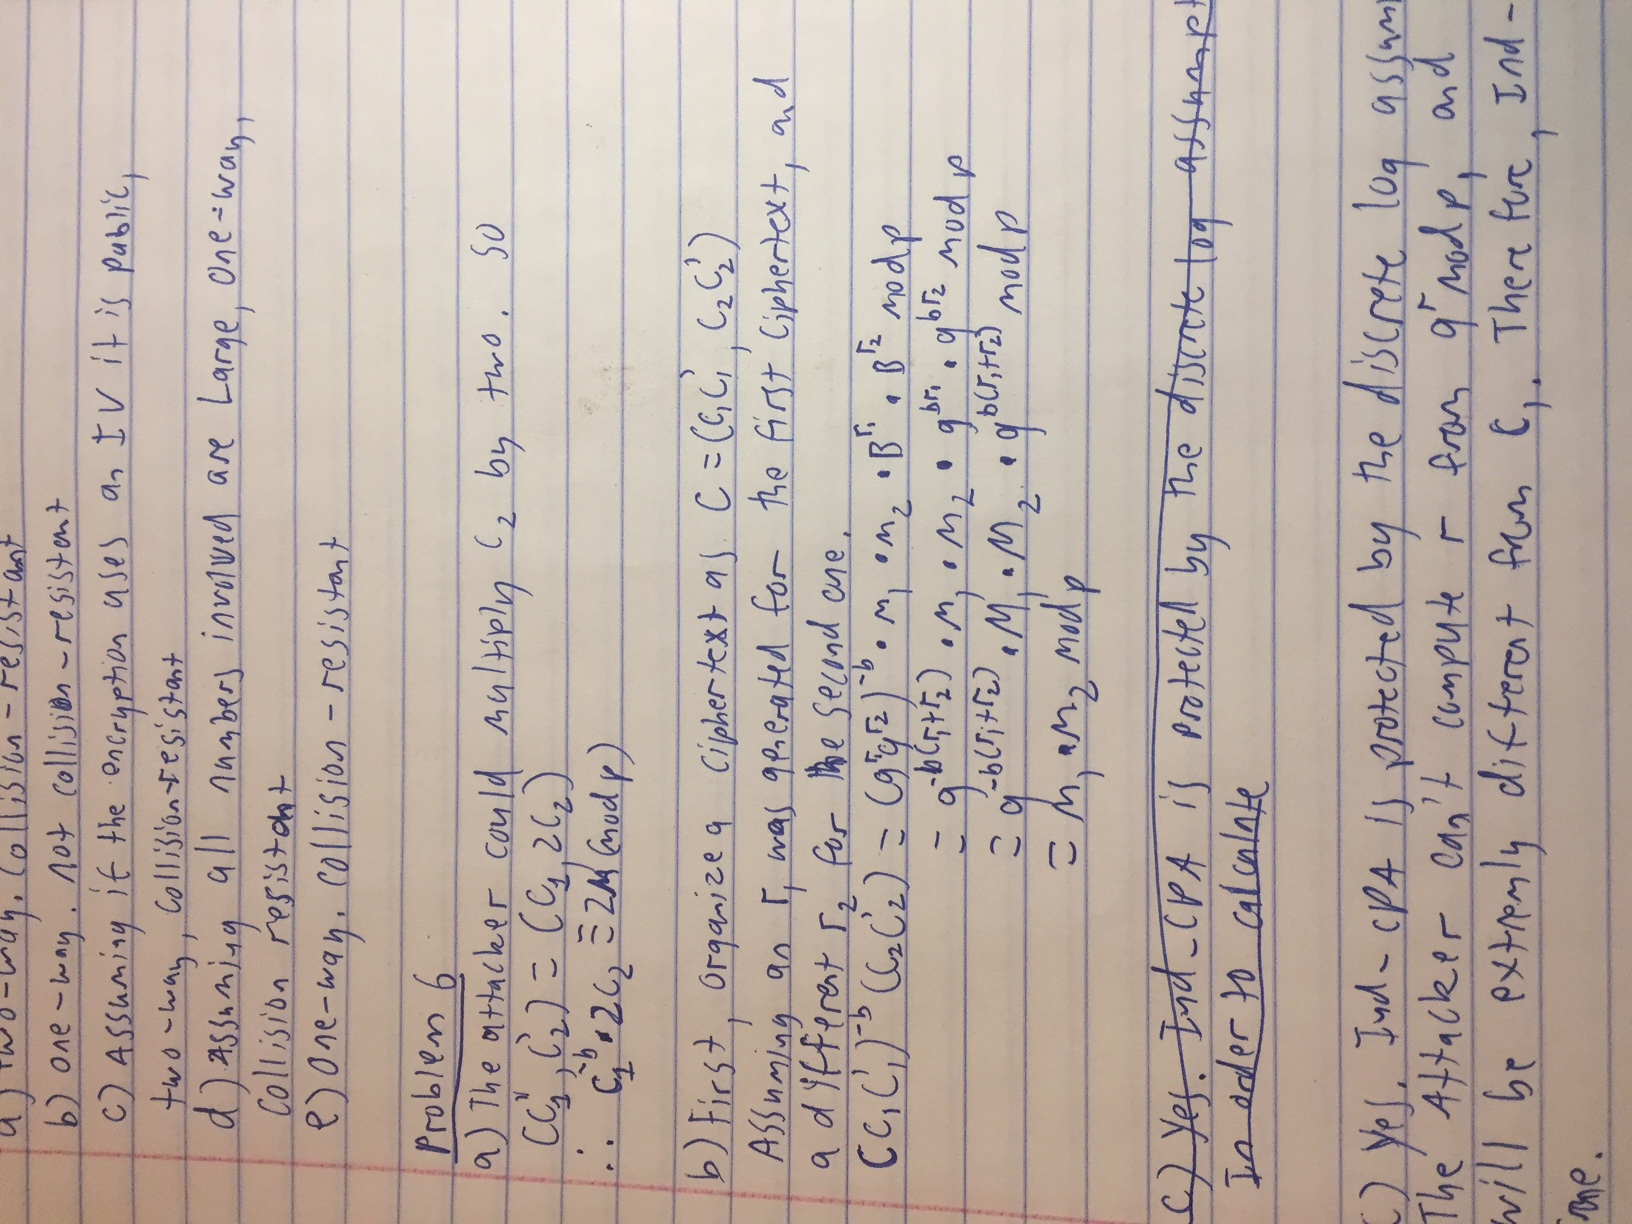 a) two-way. Collision-resistant
b) one-way. not collision-resistant
c) Assuming if the encryption uses an IV it is public,
two-way, collision-resistant
d) Assuming all numbers involved are Large, one-way,
Collision resistant
e) One-way. collision-resistant
Problem 6
a) The attacker could multiply C₂ by two. So
(C₁', C₂') = (C₁, 2C₂)
∴ C₁⁻ᵇ · 2C₂ ≡ 2M (mod p)
b) First, organize a ciphertext as C = (C₁C₁', C₂C₂')
Assuming an r₁ was generated for the first ciphertext, and
a different r₂ for the second one.
(C₁C₁')⁻ᵇ (C₂C₂') = (g^r₁g^r₂)^-b · M₁ · M₂ · B^r₁ · B^r₂ mod p
= g^-b(r₁+r₂) · M₁ · M₂ · g^br₁ · g^br₂ mod p
= g^-b(r₁+r₂) · M₁ · M₂ · g^b(r₁+r₂) mod p
= M₁ · M₂ mod p
c) Yes. Ind-CPA is protected by the discrete log assumpt
In order to calculate
c) Yes. Ind-CPA is protected by the discrete log assum
The Attacker can't compute r from g^r mod p, and
will be extremly different from C₁. Therefore, Ind-